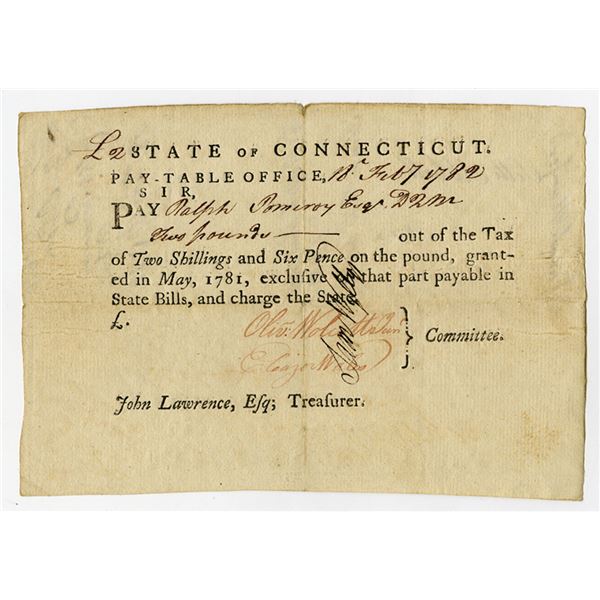 £2 STATE OF CONNECTICUT.
PAY-TABLE OFFICE, 18th Feby 1782
SIR,
PAY Ralph Pomeroy Esqr DQM
Two pounds out of the Tax
of Two Shillings and Six Pence on the pound, grant-
ed in May, 1781, exclusive of that part payable in
State Bills, and charge the State.
£.
Olivr Wolcott Junr
Eleazr Wales } Committee.
Sam Wyllys
John Lawrence, Eſq; Treaſurer.